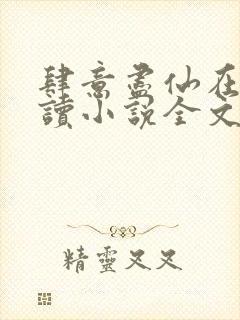 肆意盡仙在
讀小說全文
精靈又又